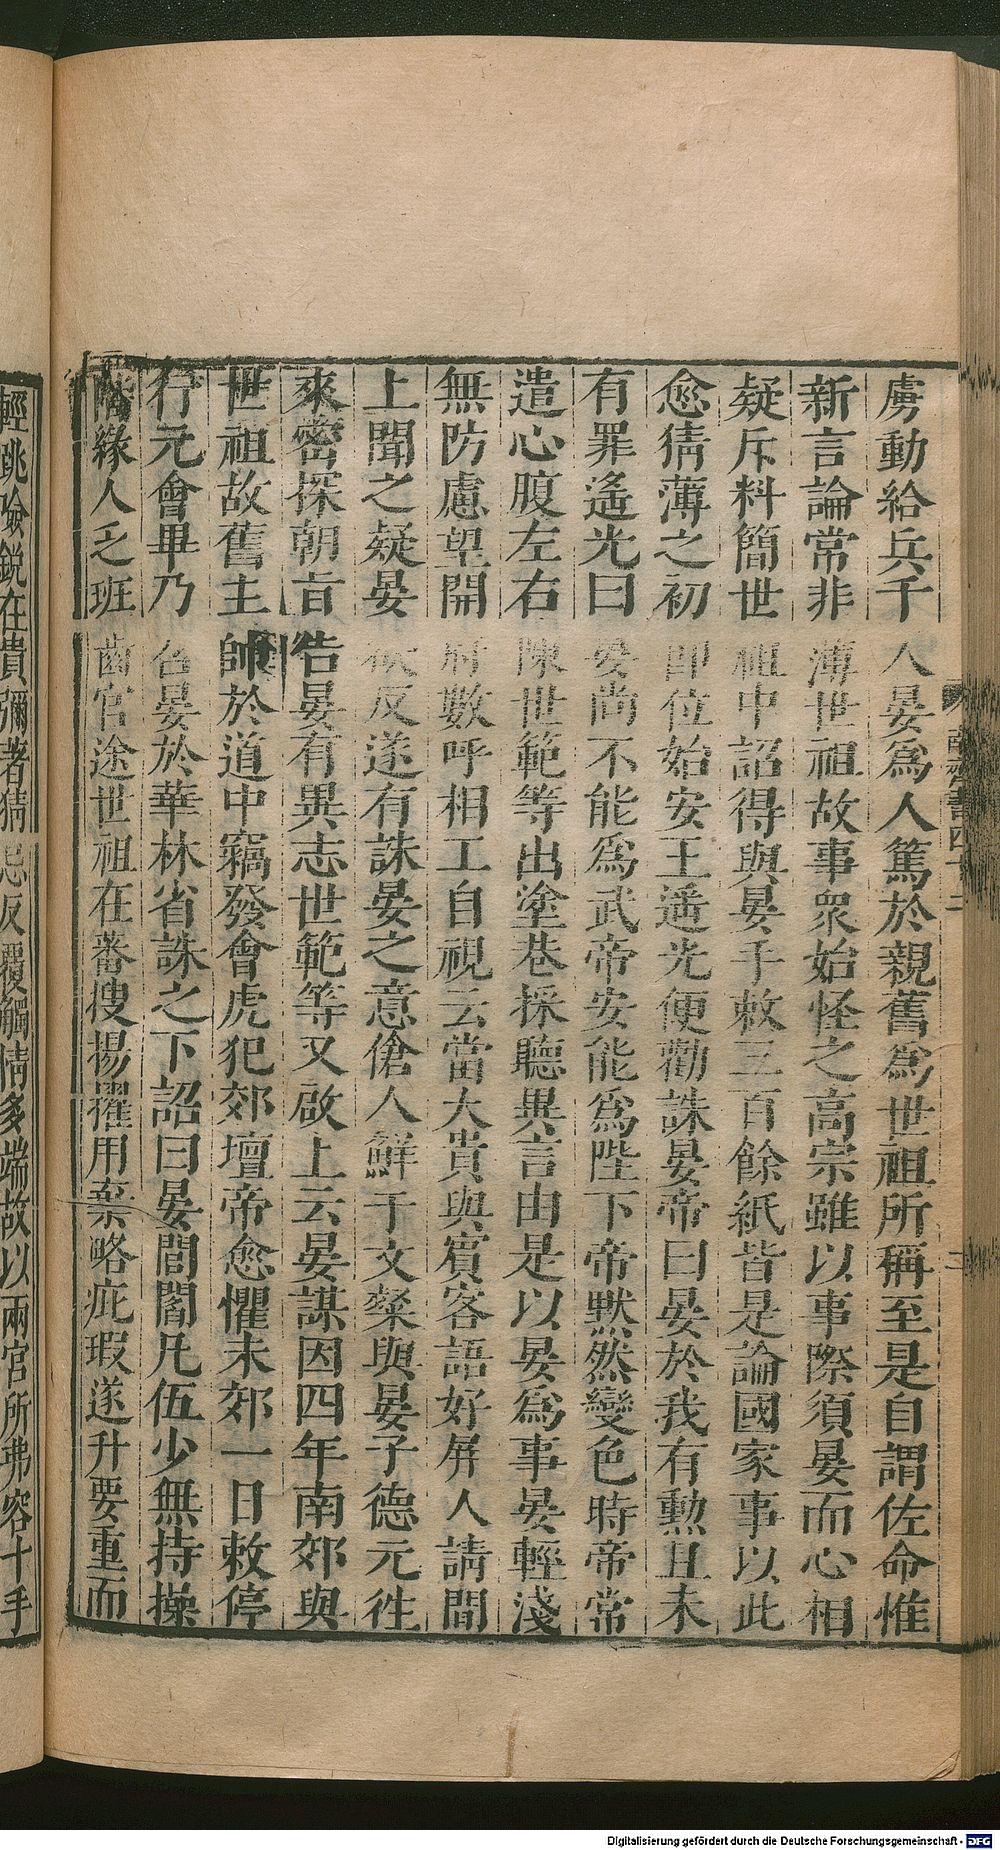 虜動給兵千人晏爲人篤於親舊爲世祖所稱至是自謂佐命惟
新言論常非薄世祖故事衆始怪之高宗雖以事際須晏而心相
疑斥料簡世祖中詔得與晏手敕三百餘紙皆是論國家事以此
愈猜薄之初即位始安王遥光便勸誅晏帝曰晏於我有勲且未
有罪遙光曰晏尚不能爲武帝安能爲陛下帝默然變色時帝常
遣心腹左右陳世範等出塗巷採聽異言由是以晏爲事晏輕淺
無防慮望開府數呼相工自視云當大貴與賓客語好屏人請間
上聞之疑晏欲反遂有誅晏之意傖人鮮于文粲與晏子德元徃
來密探朝旨告晏有異志世範等又啟上云晏謀因四年南郊與
世祖故舊主帥於道中竊發會虎犯郊壇帝愈懼未郊一日敕停
行元會畢乃召晏於華林省誅之下詔曰晏閭閻凡伍少無持操
階緣人乏班齒官途世祖在蕃搜揚擢用棄略疵瑕遂升要重而
輕跳險銳在貴彌著猜忌反覆觸情多端故以兩宮所弗容十手
南齊書四十二
Digitalisierung gefördert durch die Deutsche Forschungsgemeinschaft - DFG